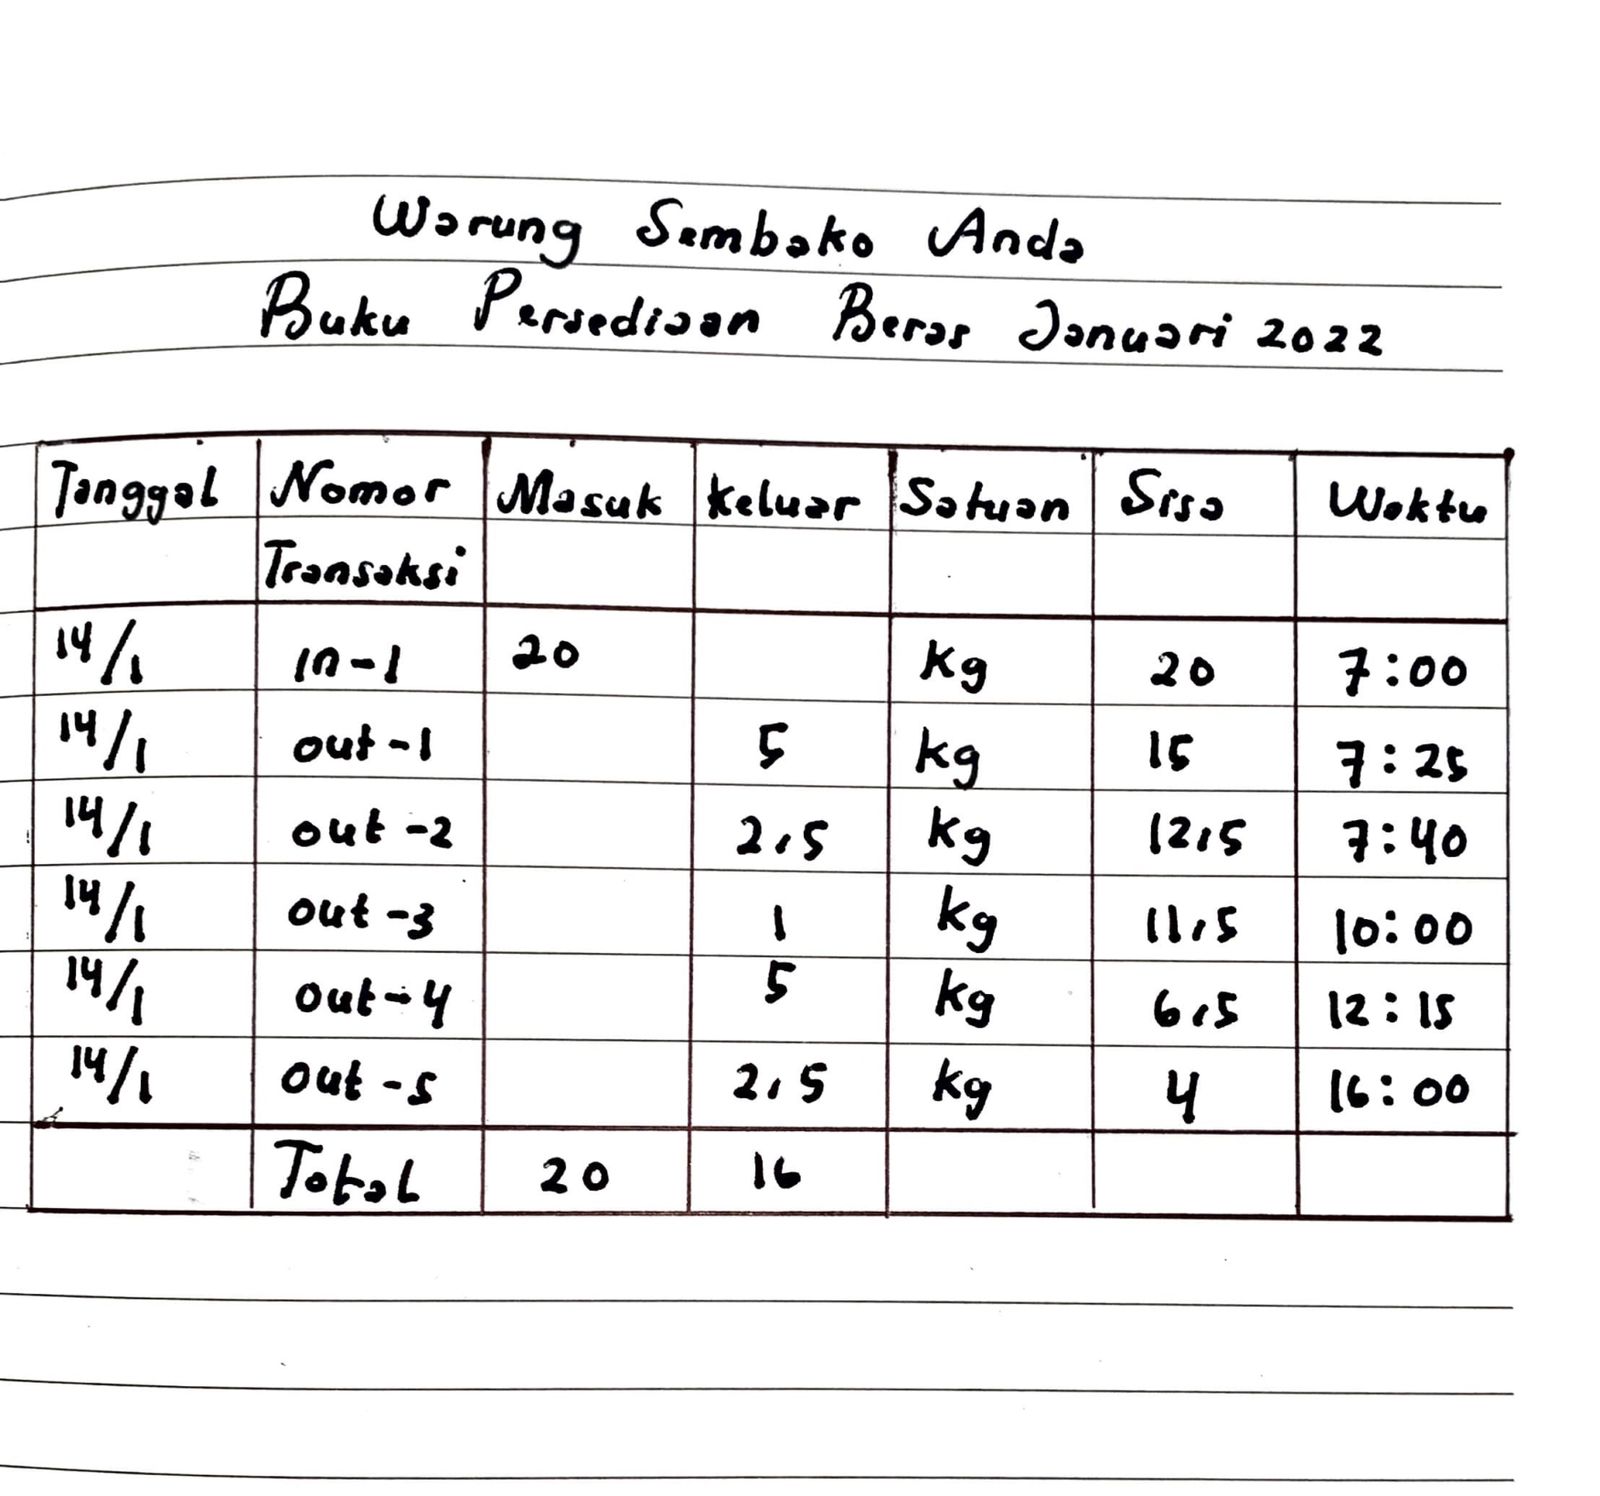 Warung Sembako Anda
Buku Persediaan Beras Januari 2022
Tanggal Nomor Masuk Keluar Satuan Sisa Waktu
Transaksi
14/1 in-1 20 kg 20 7:00
14/1 out-1 5 kg 15 7:25
14/1 out-2 2,5 kg 12,5 7:40
14/1 out-3 1 kg 11,5 10:00
14/1 out-4 5 kg 6,5 12:15
14/1 out-5 2,5 kg 4 16:00
Total 20 16